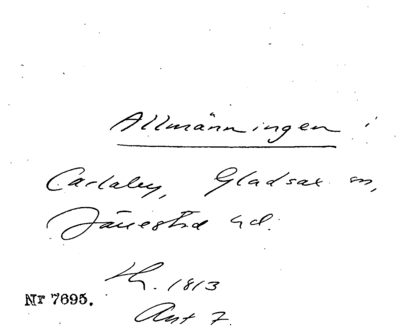 Allmänningen i
Carlaby, Gladsax sn,
Järrestad hd.
Kh. 1813
Nr 7695.
Ant 7.